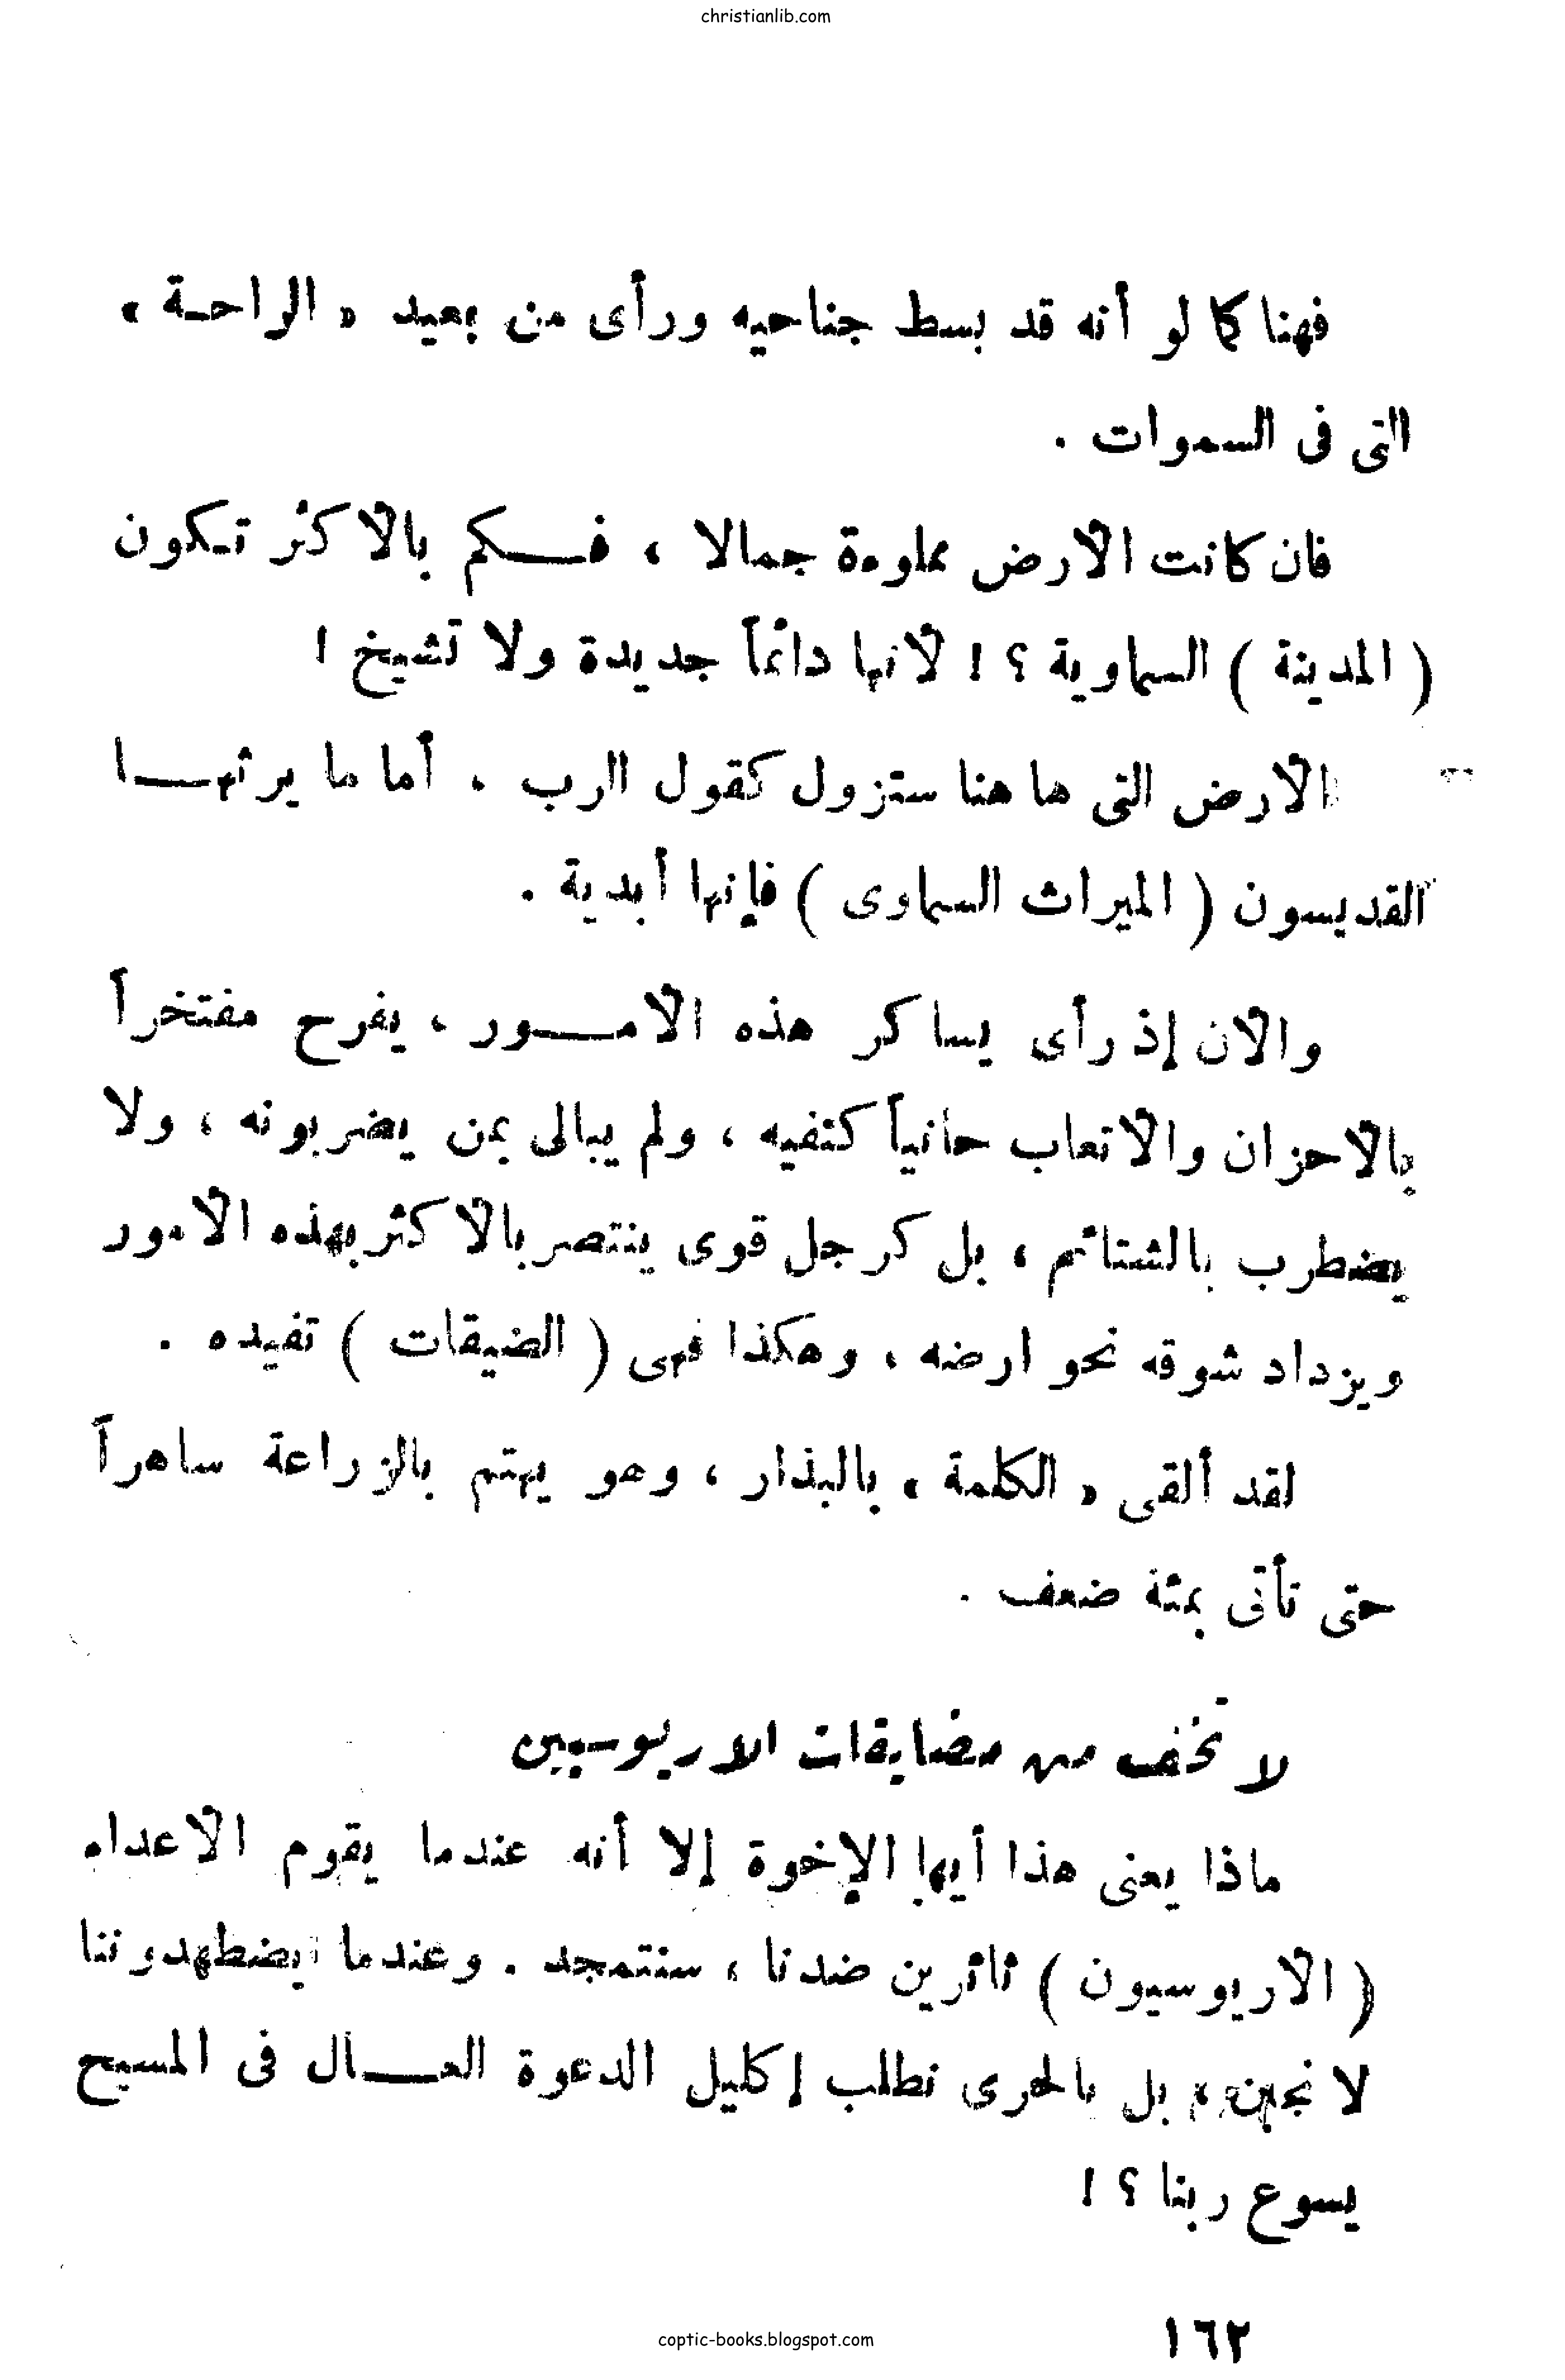 christianlib.com
فهنا كما لو أنه قد بسط جناحيه ورأى من بعيد « الراحة »
التى فى السموات .
فان كانت الارض مملوءة جمالا ، فكم بالاكثر تكون
( المدينة ) السماوية ؟ ! لانها دائماً جديدة ولا تشيخ !
الارض التى ها هنا ستزول كقول الرب ، أما ما يرثها
القديسون ( الميراث السماوى ) فإنها أبدية .
والان إذ رأى يساكر هذه الامور ، يفرح مفتخراً
بالاحزان والاتعاب حانياً كتفيه ، ولم يبالى بمن يضربونه ، ولا
يضطرب بالشتائم ، بل كرجل قوى ينتصر بالاكثر بهذه الامور
ويزداد شوقه نحو ارضه ، وهكذا فهى ( الضيقات ) تفيده .
لقد ألقى « الكلمة » بالبذار ، وهو يهتم بالزراعة ساهراً
حتى تأتى بمئة ضعف .
لا تخف من مضايقات الاريوسيين
ماذا يعنى هذا أيها الإخوة إلا أنه عندما يقوم الاعداء
( الاريوسيون ) ثائرين ضدنا ، سنتمجد . وعندما يضطهدوننا
لا نجبن ، بل بالحرى نطلب إكليل الدعوة العال فى المسيح
يسوع ربنا ؟ !
١٦٢
coptic-books.blogspot.com